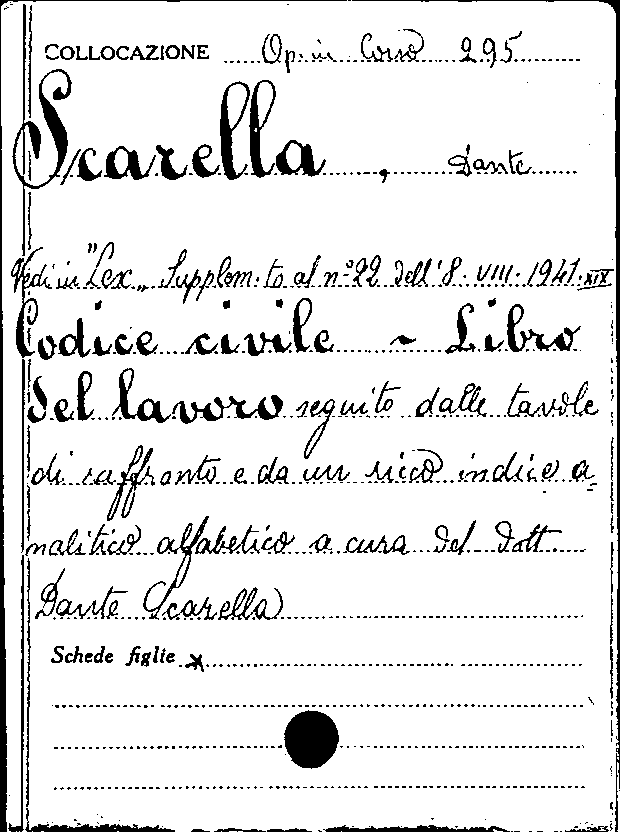 COLLOCAZIONE Op. in Corso 295
Scarella, Dante
Vedi in "Lex„ Supplem.to al n° 22 dell'8. VIII. 1941. XIX
Codice civile ~ Libro
del lavoro seguito dalle tavole
di raffronto e da un ricco indice a=
nalitico alfabetico a cura del dott.
Dante Scarella
Schede figlie x